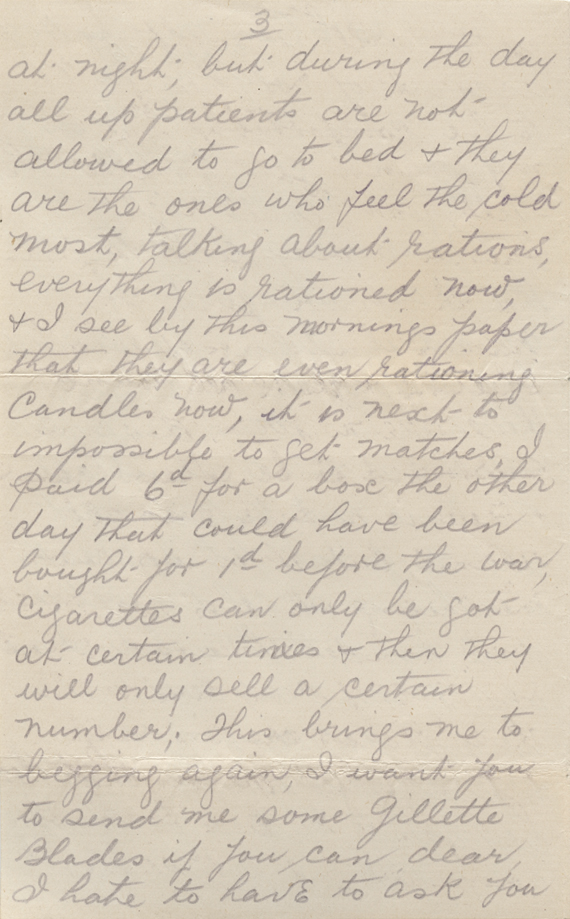 3
at night, but during the day
all up patients are not
allowed to go to bed & they
are the ones who feel the cold
most, talking about rations,
everything is rationed now,
& I see by this mornings paper
that they are even rationing
Candles now, it is next to
impossible to get matches, I
paid 6d for a box the other
day that could have been
bought for 1d before the war,
Cigarettes can only be got
at certain times & then they
will only sell a certain
number; This brings me to
begging again, I want you
to send me some Gillette
Blades if you can dear,
I hate to have to ask you